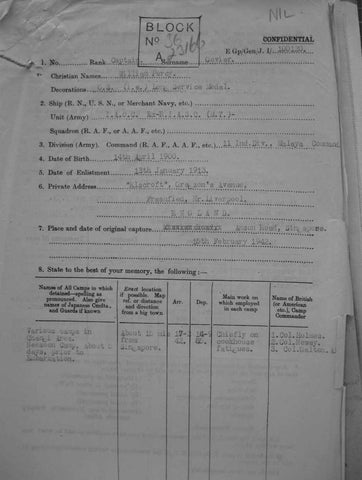 NIL.
BLOCK
No 36
A 23/66
CONFIDENTIAL
E Gp/Gen/J. I/
1. No. Rank Captain. Surname
Christian Names William Percy.
Decorations Service Medal.
2. Ship (R. N., U. S. N., or Merchant Navy, etc.)
Unit (Army)
Squadron (R. A. F., or A. A. F., etc.)
3. Division (Army). Command (R. A. F., A. A. F., etc.) 11 Ind.Div., Malaya Command
4. Date of Birth 14th April 1900.
5. Date of Enlistment 13th January 1913.
6. Private Address Avenue,
Nr. Liverpool,
ENGLAND.
7. Place and date of original capture Road, Singapore.
15th February 1942.
8. State to the best of your memory, the following :—
Names of All Camps in which detained—spelling as pronounced. Also give names of Japanese Cmdts., and Guards if known
Exact location if possible. Map ref. or distance and direction from a big town
Arr.
Dep.
Main work on which employed in each camp
Name of British (or American etc.), Camp Commander
Various camps in
Changi Area.
Camp, about
days, prior to
About 12 mls
from
Singapore.
17-2
42.
Chiefly on
cookhouse
fatigues.
1.Col.Holmes.
2.Col.
3. Col.